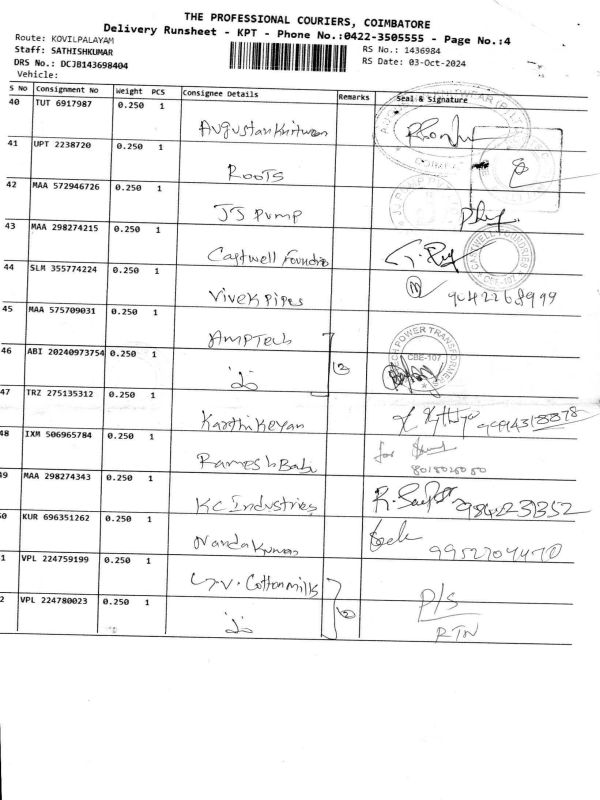 THE PROFESSIONAL COURIERS, COIMBATORE
Delivery Runsheet - KPT - Phone No.:0422-3505555 - Page No.:4
Route: KOVILPALAYAM
Staff: SATHISHKUMAR
RS No.: 1436984
DRS No.: DCJB143698404
RS Date: 03-Oct-2024
Vehicle:
S No Consignment No Weight PCS Consignee Details Remarks Seal & Signature
40 TUT 6917987 0.250 1
41 UPT 2238720 0.250 1
Roots
42 MAA 572946726 0.250 1
JS Pump
43 MAA 298274215 0.250 1
Castwell Foundries
44 SLM 355774224 0.250 1
Vivek Pipes
45 MAA 575709031 0.250 1
AMPTech
46 ABI 20240973754 0.250 1
CBE-107
47 TRZ 275135312 0.250 1
Karthikeyan
48 IXM 506965784 0.250 1
Ramesh Babu
for
49 MAA 298274343 0.250 1
KC Industries
50 KUR 696351262 0.250 1
Nandakumar
9952704470
1 VPL 224759199 0.250 1
Cotton mills
2 VPL 224780023 0.250 1
P/S
RTN